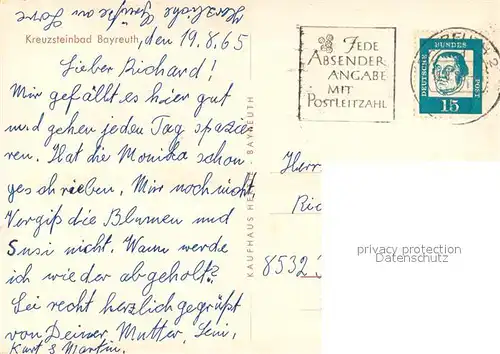 Herzliche Grüße an Lore
Kreuzsteinbad Bayreuth, den 19.8.65
Lieber Richard!
Mir gefällt es hier gut
und gehen jeden Tag spazie-
ren. Hat die Monika schon
geschrieben. Mir noch nicht,
Vergiß die Blumen und
Susi nicht. Wann werde
ich wieder abgeholt?
Sei recht herzlich gegrüßt
von Deiner Mutter,
Kurt & Martin.
KAUFHAUS BAYREUTH
JEDE
ABSENDER-
ANGABE
MIT
POSTLEITZAHL
DEUTSCHE BUNDES POST
15
Herr
Ric
8532
privacy protection
Datenschutz